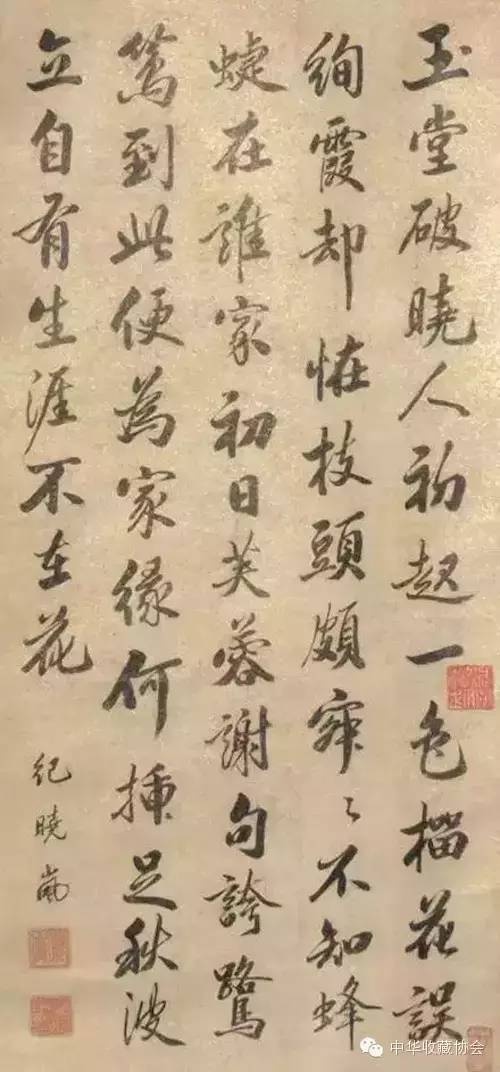 玉堂破曉人初起一色榴花誤
絢霞却恠枝頭頗寂〻不知蜂
蜨在誰家初日芙蓉謝句誇鷺
鷥到此便為家緣何插足秋波
立自有生涯不在花
紀曉嵐
中华收藏协会